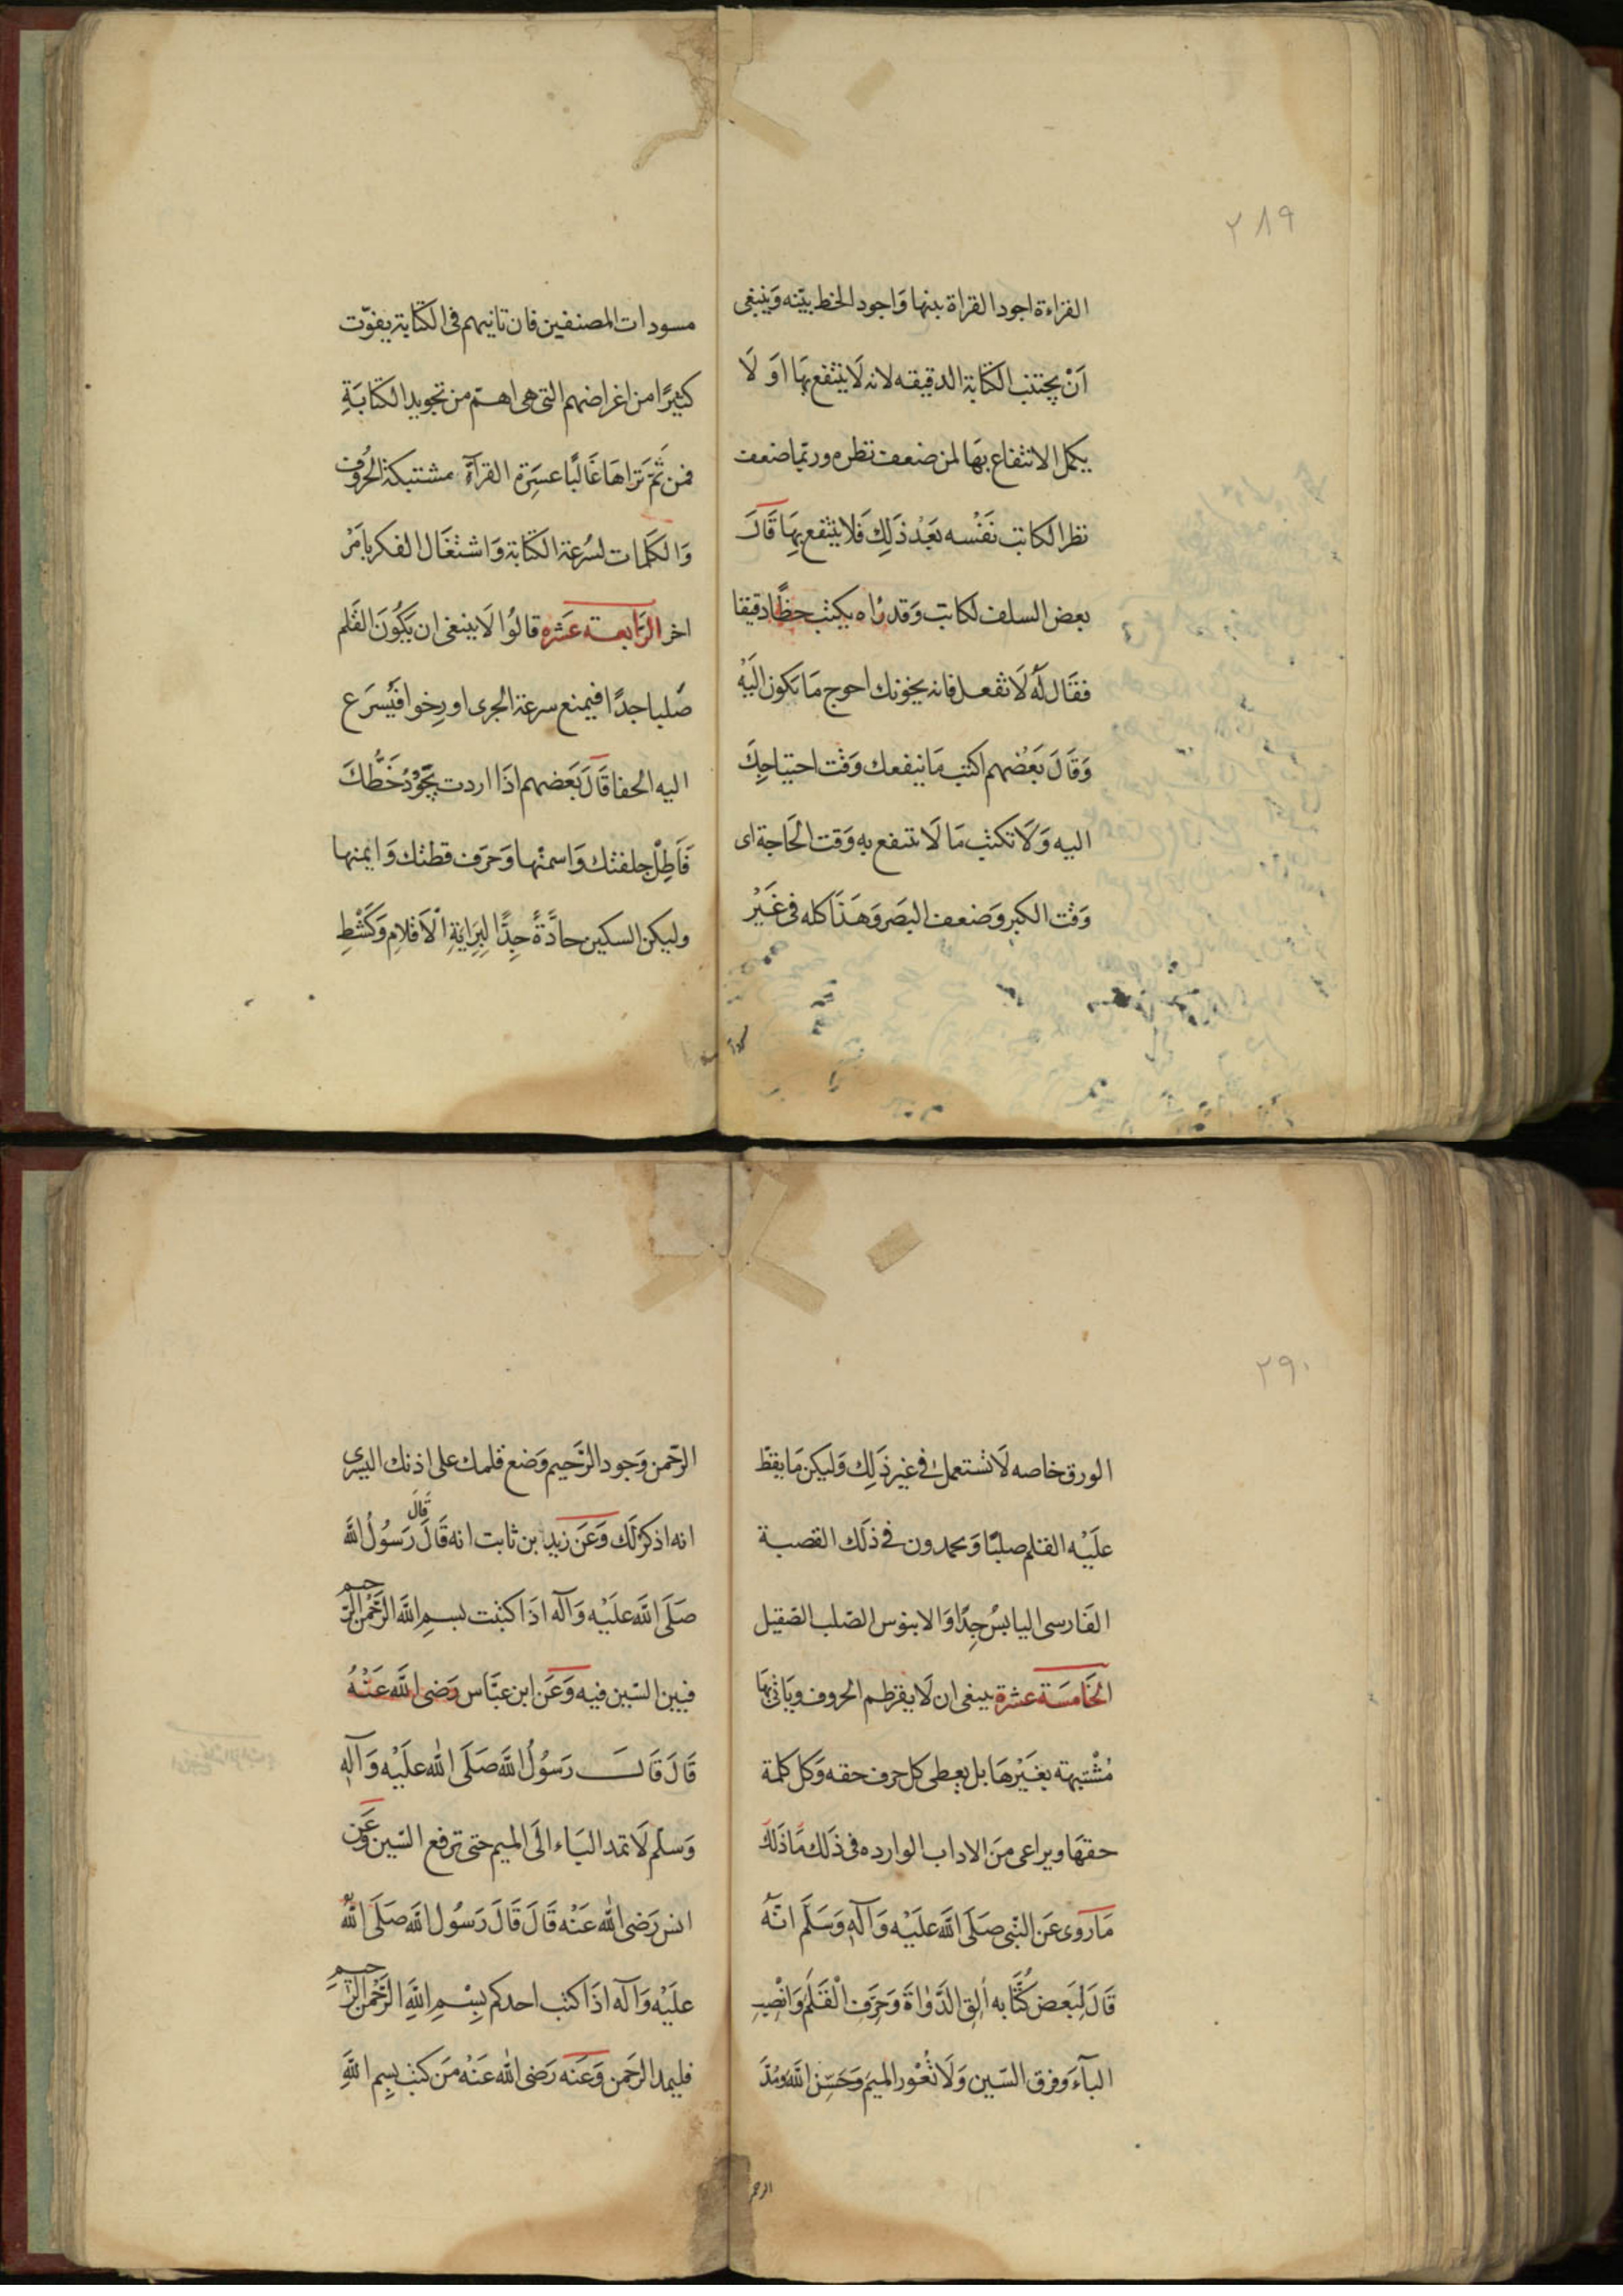 ٢٨٩
القراءة اجود القراة بينها وَاجود الخط بيّنه وَينبغى
اَنْ يجتنب الكتابة الدقيقه لانه لَا ينتفع بهَا اَو لَا
يكمل الانتفاع بهَا لمن ضعف نظره وربّما ضعف
نظر الكاتب نَفْسه بَعْد ذَلِكَ فَلا ينتفع بِهَا قَالَ
بعض السلف لكاتب وَقد رٰاه يكتب خطًّا دقيقا
فقَال لَهُ لَا تفعل فانه يخونك احوج مَا تكون الَيْه
وَقَالَ بَعْضهم اكتب مَا ينفعك وَقت احتياجِكَ
اليه وَلَا تكتب مَا لَا تنتفع بهِ وَقت الحَاجة اى
وَقت الكبر وَضعف البصَر وَهَذَا كله فى غَيْر
مسودات المصنفين فان تانيهم فى الكتابة يفوّت
كثيرًا من اغراضهم التى هى اهمّ من تجويد الكتابَةِ
فمن ثَمّ تَرَاهَا غَالبًا عسَِرة القرآة مشتبكة الحُروُف
وَالكَلمات لسُرعَة الكتابة وَاشتغَال الفكر بامَرْ
اخر الرَابعة عَشره قالوُا لَا ينبغى ان يَكُونَ القَلم
صَلبا جدًا فيمنع سرعة الجرى او رِخوا فَيُسرَع
اليه الحفا قَالَ بَعَضهم اذَا اردت تجَوّدُ خَطُّكَ
فَاَطِلْ جلفتك وَاسمنْها وَحَرَف قطتك وَايمنها
وليكن السكين حادَّةً جِدًّا لِبِرَايَةِ الْاَقلامِ وَكَشْطِ
٢٩٠
الورق خاصه لَا تُستعمل فى غير ذَلِكَ وَليكن مَا يقَطّ
علَيْه القلم صلبًا وَيحمدون فى ذلَك القصبة
الفَارسى اليابسُ جِدًّا وَالابنوس الصّلب الصّقيل
الخَامسَة عشرة ينبغى ان لَا يقرَظم الحروف وَيَاتى بهَا
مُشْتبهة بغَيْرهَا بل يعطى كل حرف حقه وَكل كلمة
حقهَا ويراعى مِنَ الاداب الوارده فى ذَلَك مَا ذَلَكَ
مَا روى عَن النّبى صَلَى اللَّه علَيْه وَآلهٖ وَسَلَّم انّهُ
قَالَ لِبَعض كُتَّابه اَلِقِ الدَّوٰاةَ وَحَرِّفِ الْقَلَمَ وَانْصِبِ
البآءَ وَفرق السّين وَلَا تُعُوِر الميمَ وَحَسِّنِ اللَّه وَمُدَّ
الرحمن
الرّحمن وَجود الرَّحيم وَضع قلمك على اذنك اليسرى
انه اذكرُ لَك وَعَن زيد بن ثابت انه قَالَ قَالَ رَسوُلُ اللَّه
صَلَى اللَّه علَيْه وَآله اذَا كتبت بسمِ اللَّه الرَّحْمن الرّحيم
فبين السّين فيه وَعَن ابن عبَّاس رَضى اللَّه عَنْهُ
قَالَ قَالَ رَسوُلُ اللَّه صَلَى اللَّه علَيْه وَآلهِ
وَسلم لَا تمد البَاء الَى الميم حتى ترفع السّين وَعَن
انس رَضى اللَّه عَنْه قَالَ قَالَ رَسُول اللَّه صَلَى اللَّهُ
علَيْه وَآله اذَا كتب احدكم بِسْمِ اللَّهِ الرَّحْمنِ الرَّحيمِ
فليمد الرحَمن وَعَنه رَضى اللَّه عَنْه مَن كتب بِسِم اللَّهِ